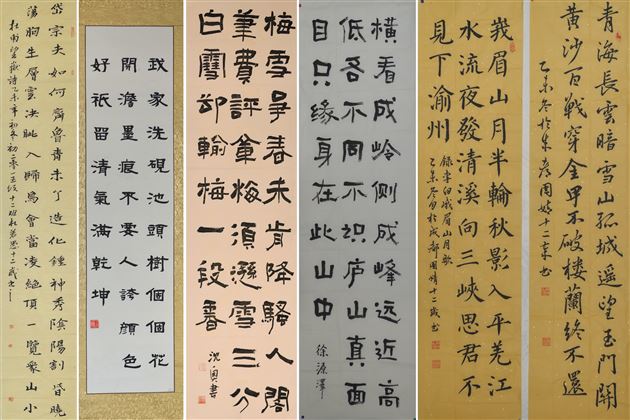 青海長雲暗雪山孤城遥望玉門關
黄沙百戰穿金甲不破楼蘭終不還
乙未冬於
十二歲书
峩眉山月半輪秋影入平羌江
水流夜發清溪向三峽思君不
見下渝州
錄李白峨眉山月歌
乙未冬月於成都周婧十二歲书
橫看成岭侧成峰远近高
低各不同不识庐山真面
目只缘身在此山中
徐源澤
梅雪爭春未肯降騷人閣
筆費評章梅須遜雪三分
白雪却輸梅一段香
我家洗硯池頭樹個個花
開澹墨痕不要人誇顏色
好祇留清氣滿乾坤
岱宗夫如何齊魯青未了造化鍾神秀陰陽割昏曉
蕩胸生層雲決眦入歸鳥會當凌絕頂一覽衆山小
杜甫望嶽詩乙未年初冬